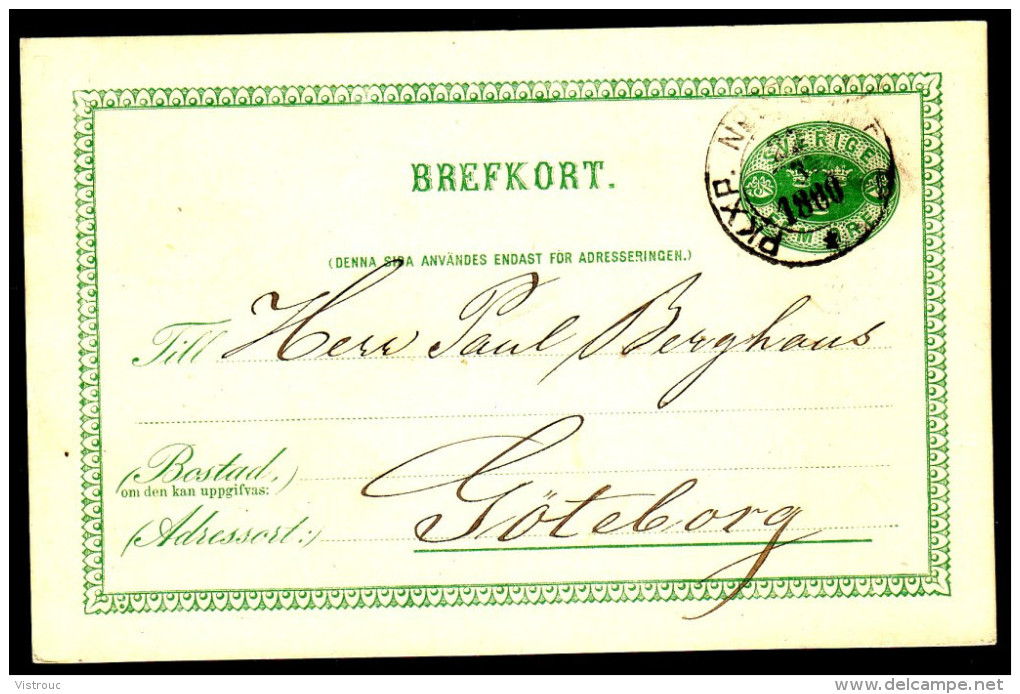 PKXP. N
SVERIGE
1880
FEM ÖRE
BREFKORT.
(DENNA SIDA ANVÄNDES ENDAST FÖR ADRESSERINGEN.)
Till Herr Paul Berghaus
(Bostad,)
om den kan uppgifvas:
(Adressort:) Göteborg
Vistrouc
delcampe.net